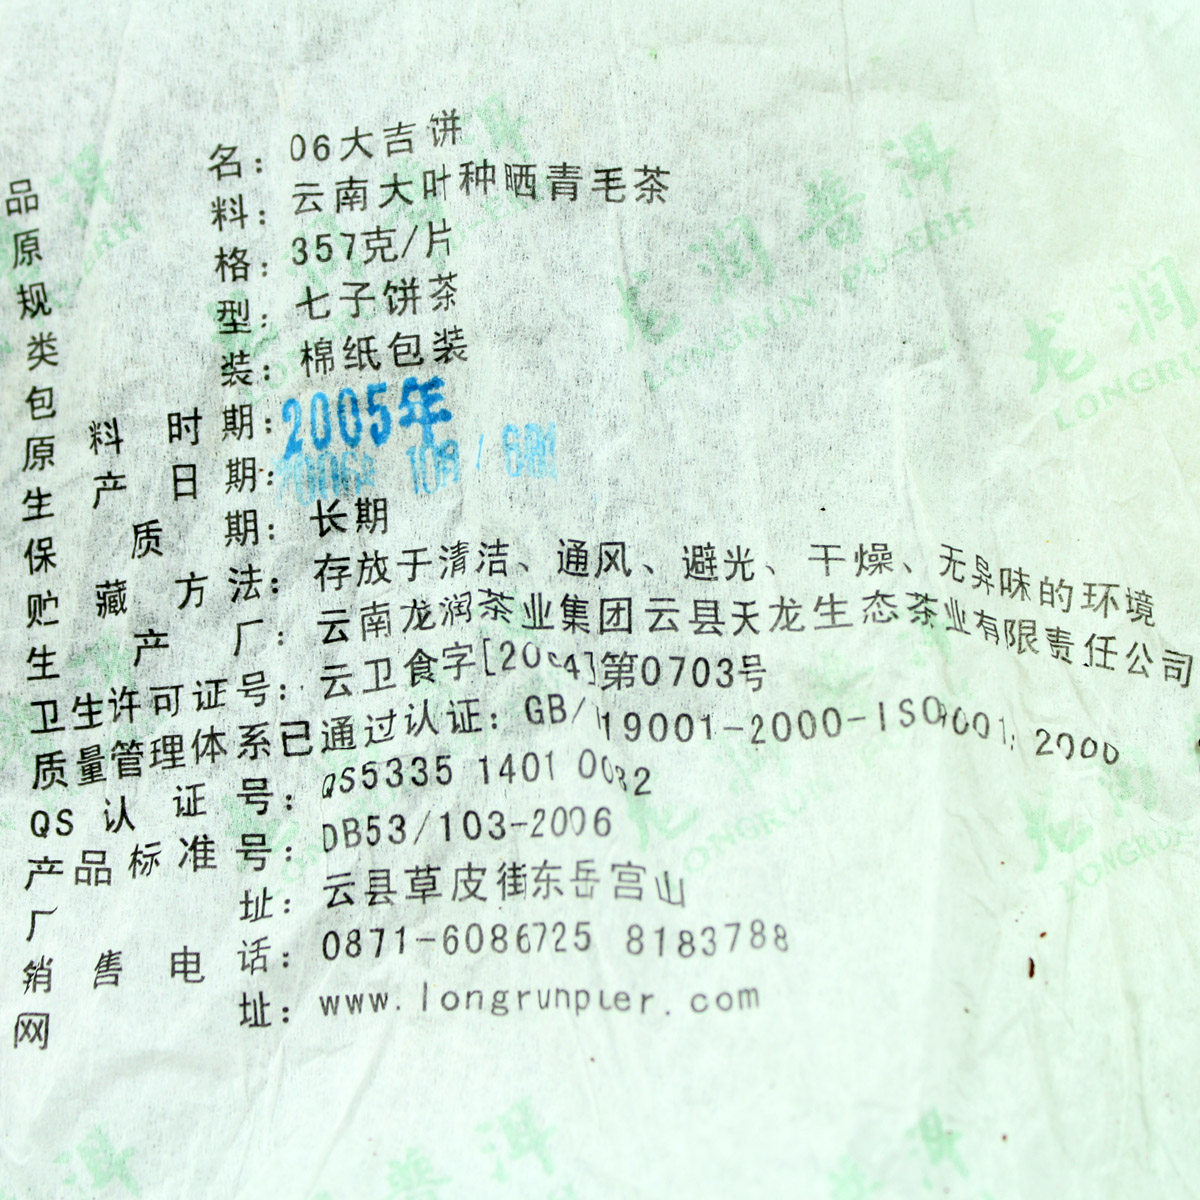 品名：06大吉饼
原料：云南大叶种晒青毛茶
规格：357克/片
类型：七子饼茶
包装：棉纸包装
原料时期：2005年
生产日期：2006年 10月/6
保质期：长期
贮藏方法：存放于清洁、通风、避光、干燥、无异味的环境
生产厂：云南龙润茶业集团云县天龙生态茶业有限责任公司
卫生许可证号：云卫食字[2004]第0703号
质量管理体系已通过认证：GB/T19001-2000-ISO9001:2000
QS认证号：QS5335 1401 0032
产品标准号：DB53/103-2006
厂址：云县草皮街东岳宫山
销售电话：0871-6086725 8183788
网址：www.longrunpuer.com
龙润普洱
LONGRUN PU-ERH